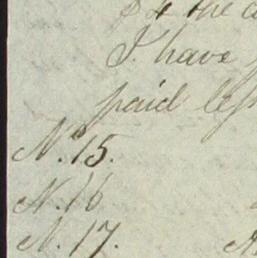 & the
I have
paid less
No. 15.
N. 16
N. 17.